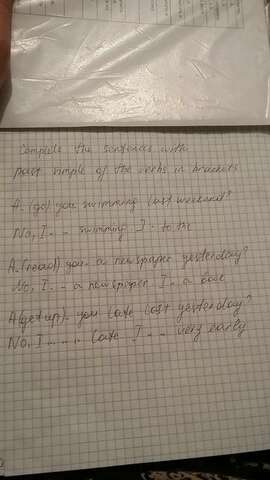 Complete the sentences with
past simple of the verbs in brackets
A. (go) you swimming last weekend?
No, I... swimming. I... to the
A. (read) you... a newspaper yesterday?
No, I... a newspaper I... a book
A (get up)... you late last yesterday?
No, I..... late I... very early